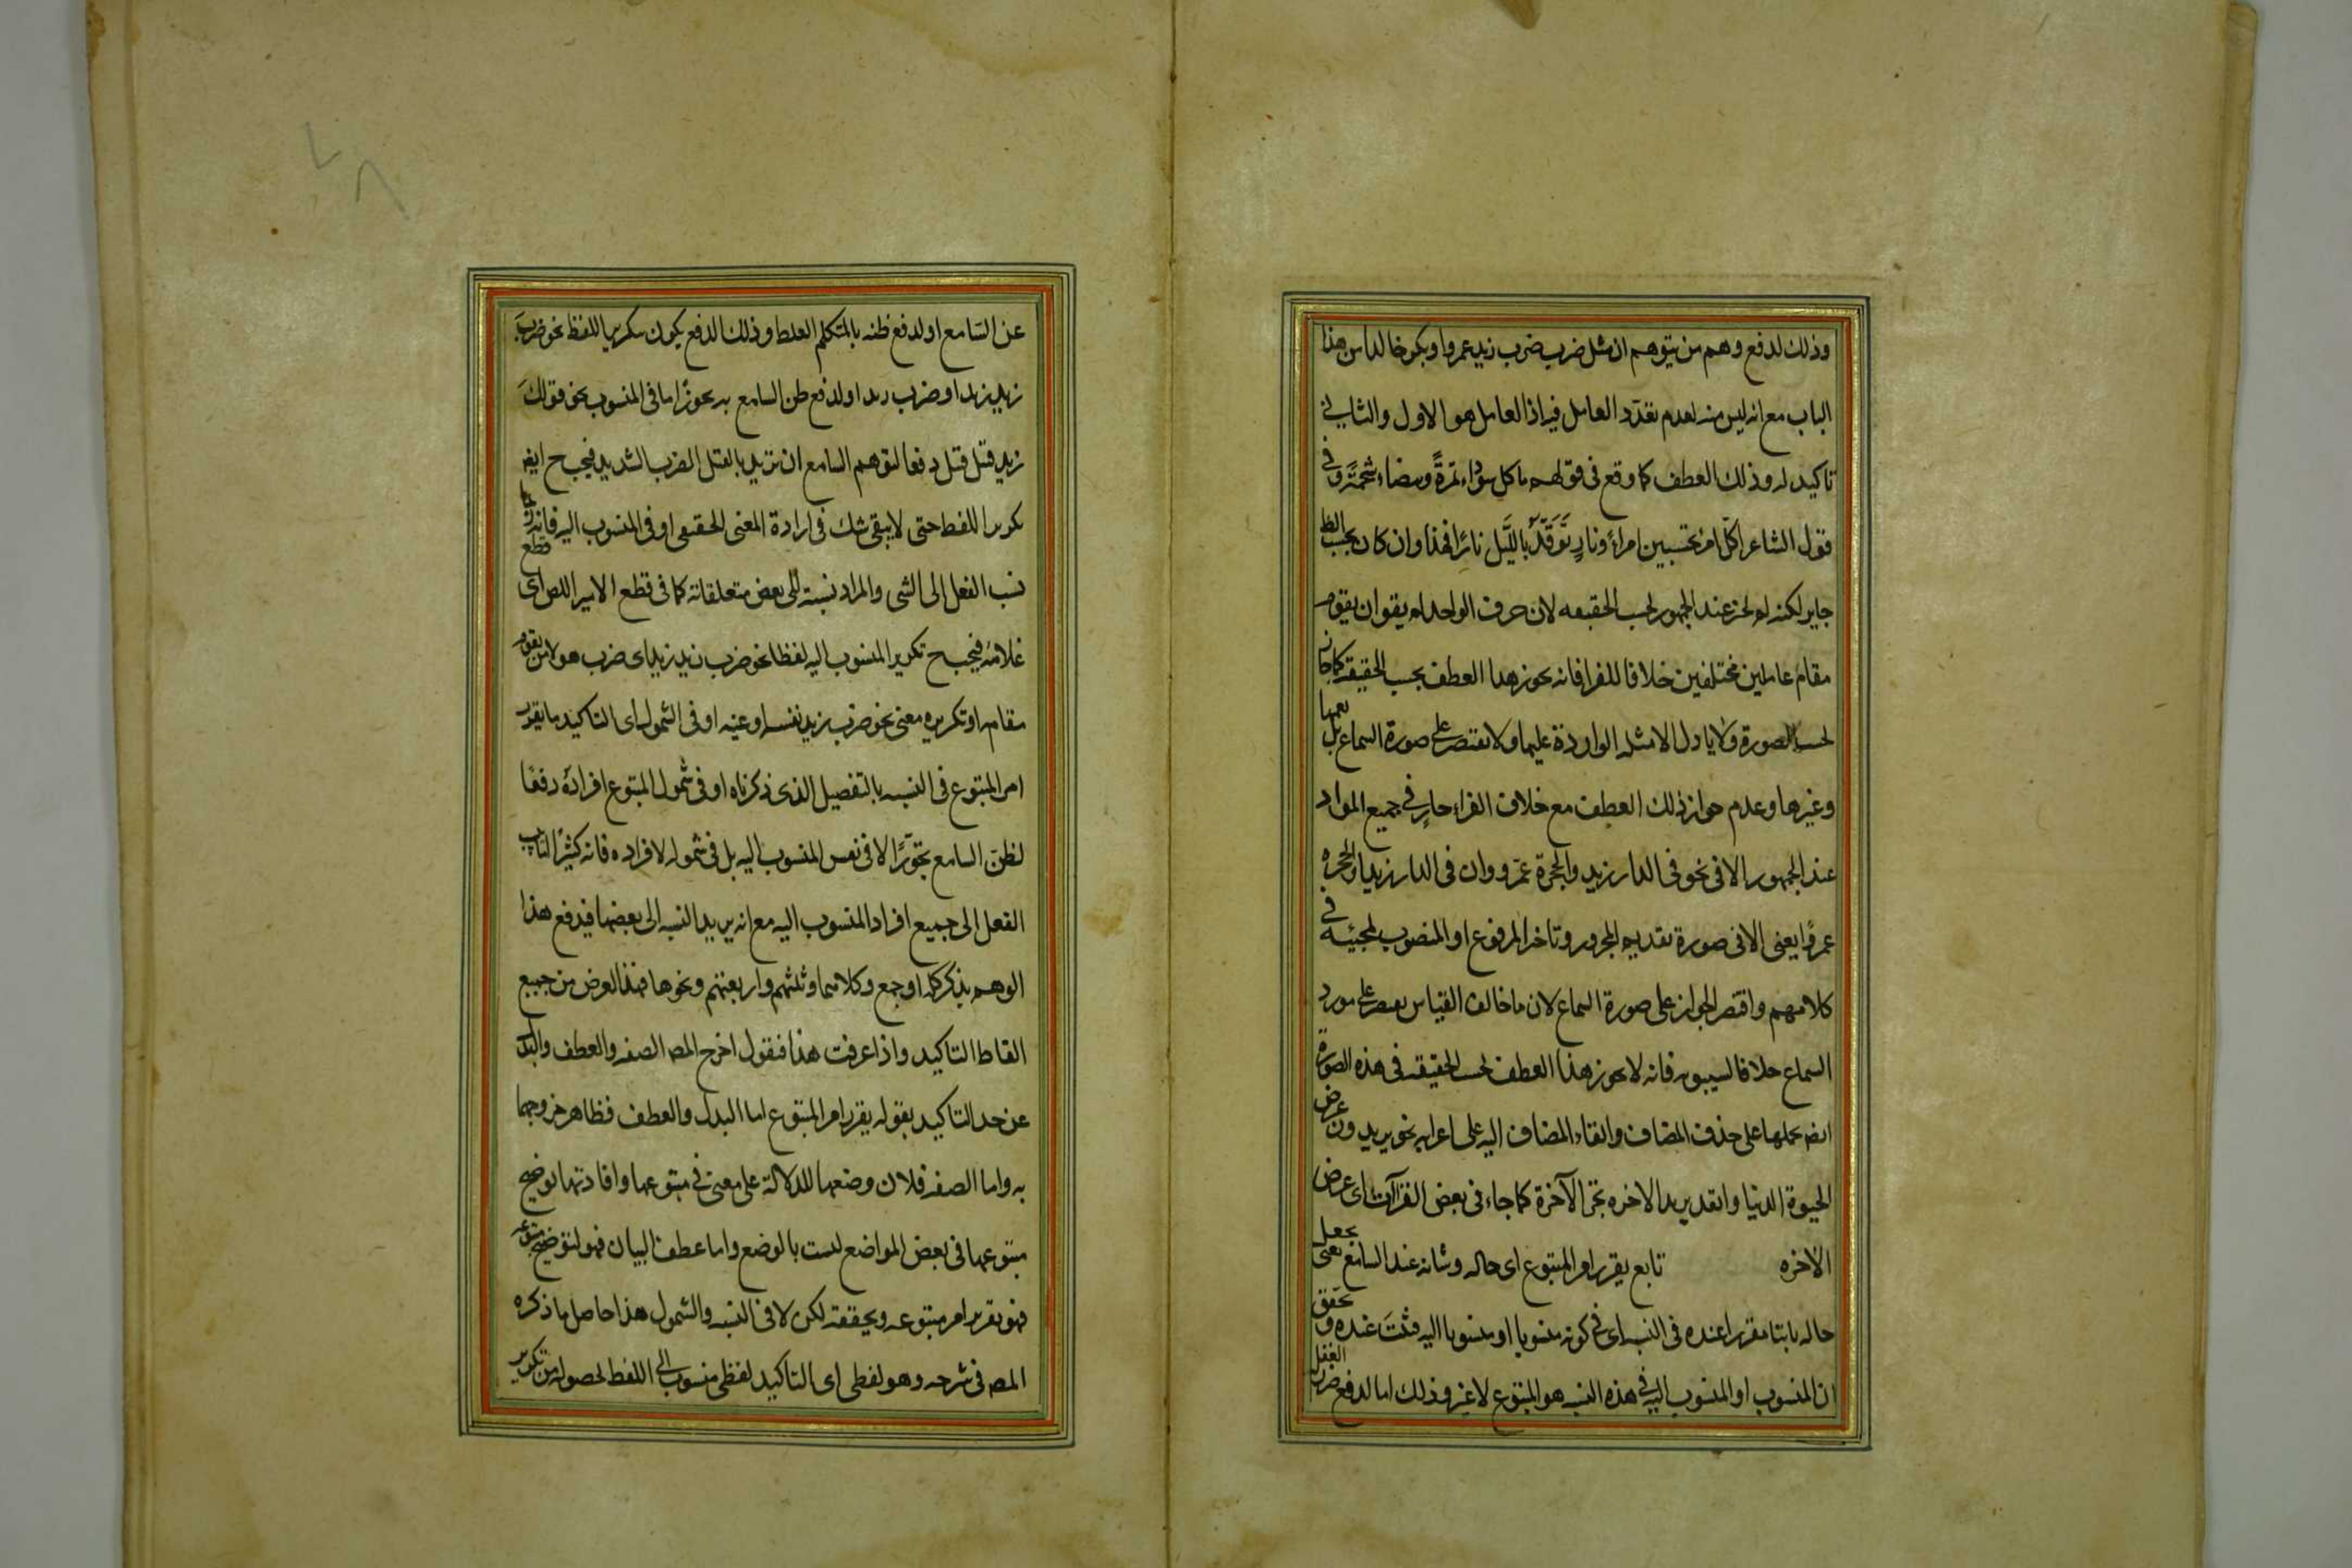 وذلك لدفع وهم من يتوهم ان مثل ضرب ضرب زيد عمروا وبكر خالدا من هذا
الباب مع انه ليس منه لعدم تعدد العامل فيه اذ العامل هو الاول والثانى
تاكيد له وذلك العطف كما وقع فى قولهم ما كل سوداء تمرةً وبيضاء شحمةً وفى
قول الشاعر اكلّ امرءٍ تحسبين امراءً ونارٍ تَوَقَّدُ باللَّيل نارًا فهذا وان كان بحسب الظ
جايز لكنه لم يجز عند الجمهور بحسب الحقيقه لان حرف الواحد لم يقو ان يقوم
مقام عاملين مختلفين خلافا للفرا فانه يجوز هذا العطف بحسب الحقيقه كما جاز
بحسب الصورة ولا ياول الامثله الواردة عليها ولا يقتصر على صورة السماع بل يعمها
وغيرها وعدم جواز ذلك العطف مع خلاف الفراء جارٍ فى جميع المواد
عند الجمهور الا فى نحو فى الدار زيد والحجرة عمرو وان فى الدار زيدا والحجره
عمرًوا يعنى الا فى صورة تقديم المجرور وتاخر المرفوع او المنصوب لمجيئه فى
كلامهم واقتصر الجواز على صورة السماع لان ما خالف القياس يقتصر على مورد
السماع خلافا لسيبويه فانه لا يجوز هذا العطف بحسب الحقيقه فى هذه الصورة
ايضا بحملها على حذف المضاف وابقاء المضاف اليه على اعرابه نحو يريدون عرض
الحيوة الدنيا والله يريد الاخره بجر الآخرة كما جاء فى بعض القرآت اى عرض
الاخره تابع يقرر امر المتبوع اى حاله وشانه عند السامع يعنى يجعل
حاله ثابتا مقررا عنده فى النسبه اى فى كونه منسوبا او منسوبا اليه فثبت عنده وتحقق
ان المنسوب او المنسوب اليه فى هذه النسبه هو المتبوع لا غير وذلك اما لدفع ضرر الغفل
عن السّامع او لدفع ظنه بالمتكلم الغلط وذلك الدفع يكون بتكرير اللفظ نحو ضربَ
زيد زيد او ضرب ضرب زيد او لدفع ظن السامع به تجوزًا اما فى المنسوب نحو قولكَ
زيد قتل قتل دفعا لتوهم السامع ان تريد بالقتل الضرب الشديد فيجب ح ايض
تكرير اللفظ حتى لا يبقى شك فى ارادة المعنى الحقيقى او فى المنسوب اليه فانه ربما
نسب الفعل الى الشى والمراد نسبته الى بعض متعلقاته كما فى قطع الامير اللص اى قطع
غلامه فيجب ح تكرير المنسوب اليه لفظا نحو ضرب زيد زيد اى ضرب هو لا من يقوم
مقامه او تكريره معنى نحو ضرب زيد نفسه او عينه او فى الشمول اى التاكيد ما يقرر
امر المتبوع فى النسبه بالتفصيل الذى ذكرناه او فى شمول المتبوع افراده دفعًا
لظن السامع تجوزًا لا فى نفس المنسوب اليه بل فى شموله لافراده فانه كثيرًا ما ينسب
الفعل الى جميع افراد المنسوب اليه مع انه يريد النسبه الى بعضها فيدفع هذا
الوهم بذكر كله او جمع وكلاهما وثلثتهم واربعتهم ونحوها فهذا الغرض من جميع
الفاظ التاكيد واذا عرفت هذا فنقول اخرج المصـ الصفه والعطف والبدل
عن حد التاكيد بقوله يقرر امر المتبوع اما البدل والعطف فظاهر خروجهما
به واما الصفه فلان وضعها للدلالة على معنى فى متبوعها وافادتها توضيح
متبوعها فى بعض المواضع ليست بالوضع واما عطف البيان فهو لتوضيح متبوعه
فهو يقرر امر متبوعه ويحققه لكن لا فى النسبه والشمول هذا حاصل ما ذكره
المصـ فى شرحه وهو لفظى اى التاكيد لفظى منسوب الى اللفظ لحصوله من تكرير